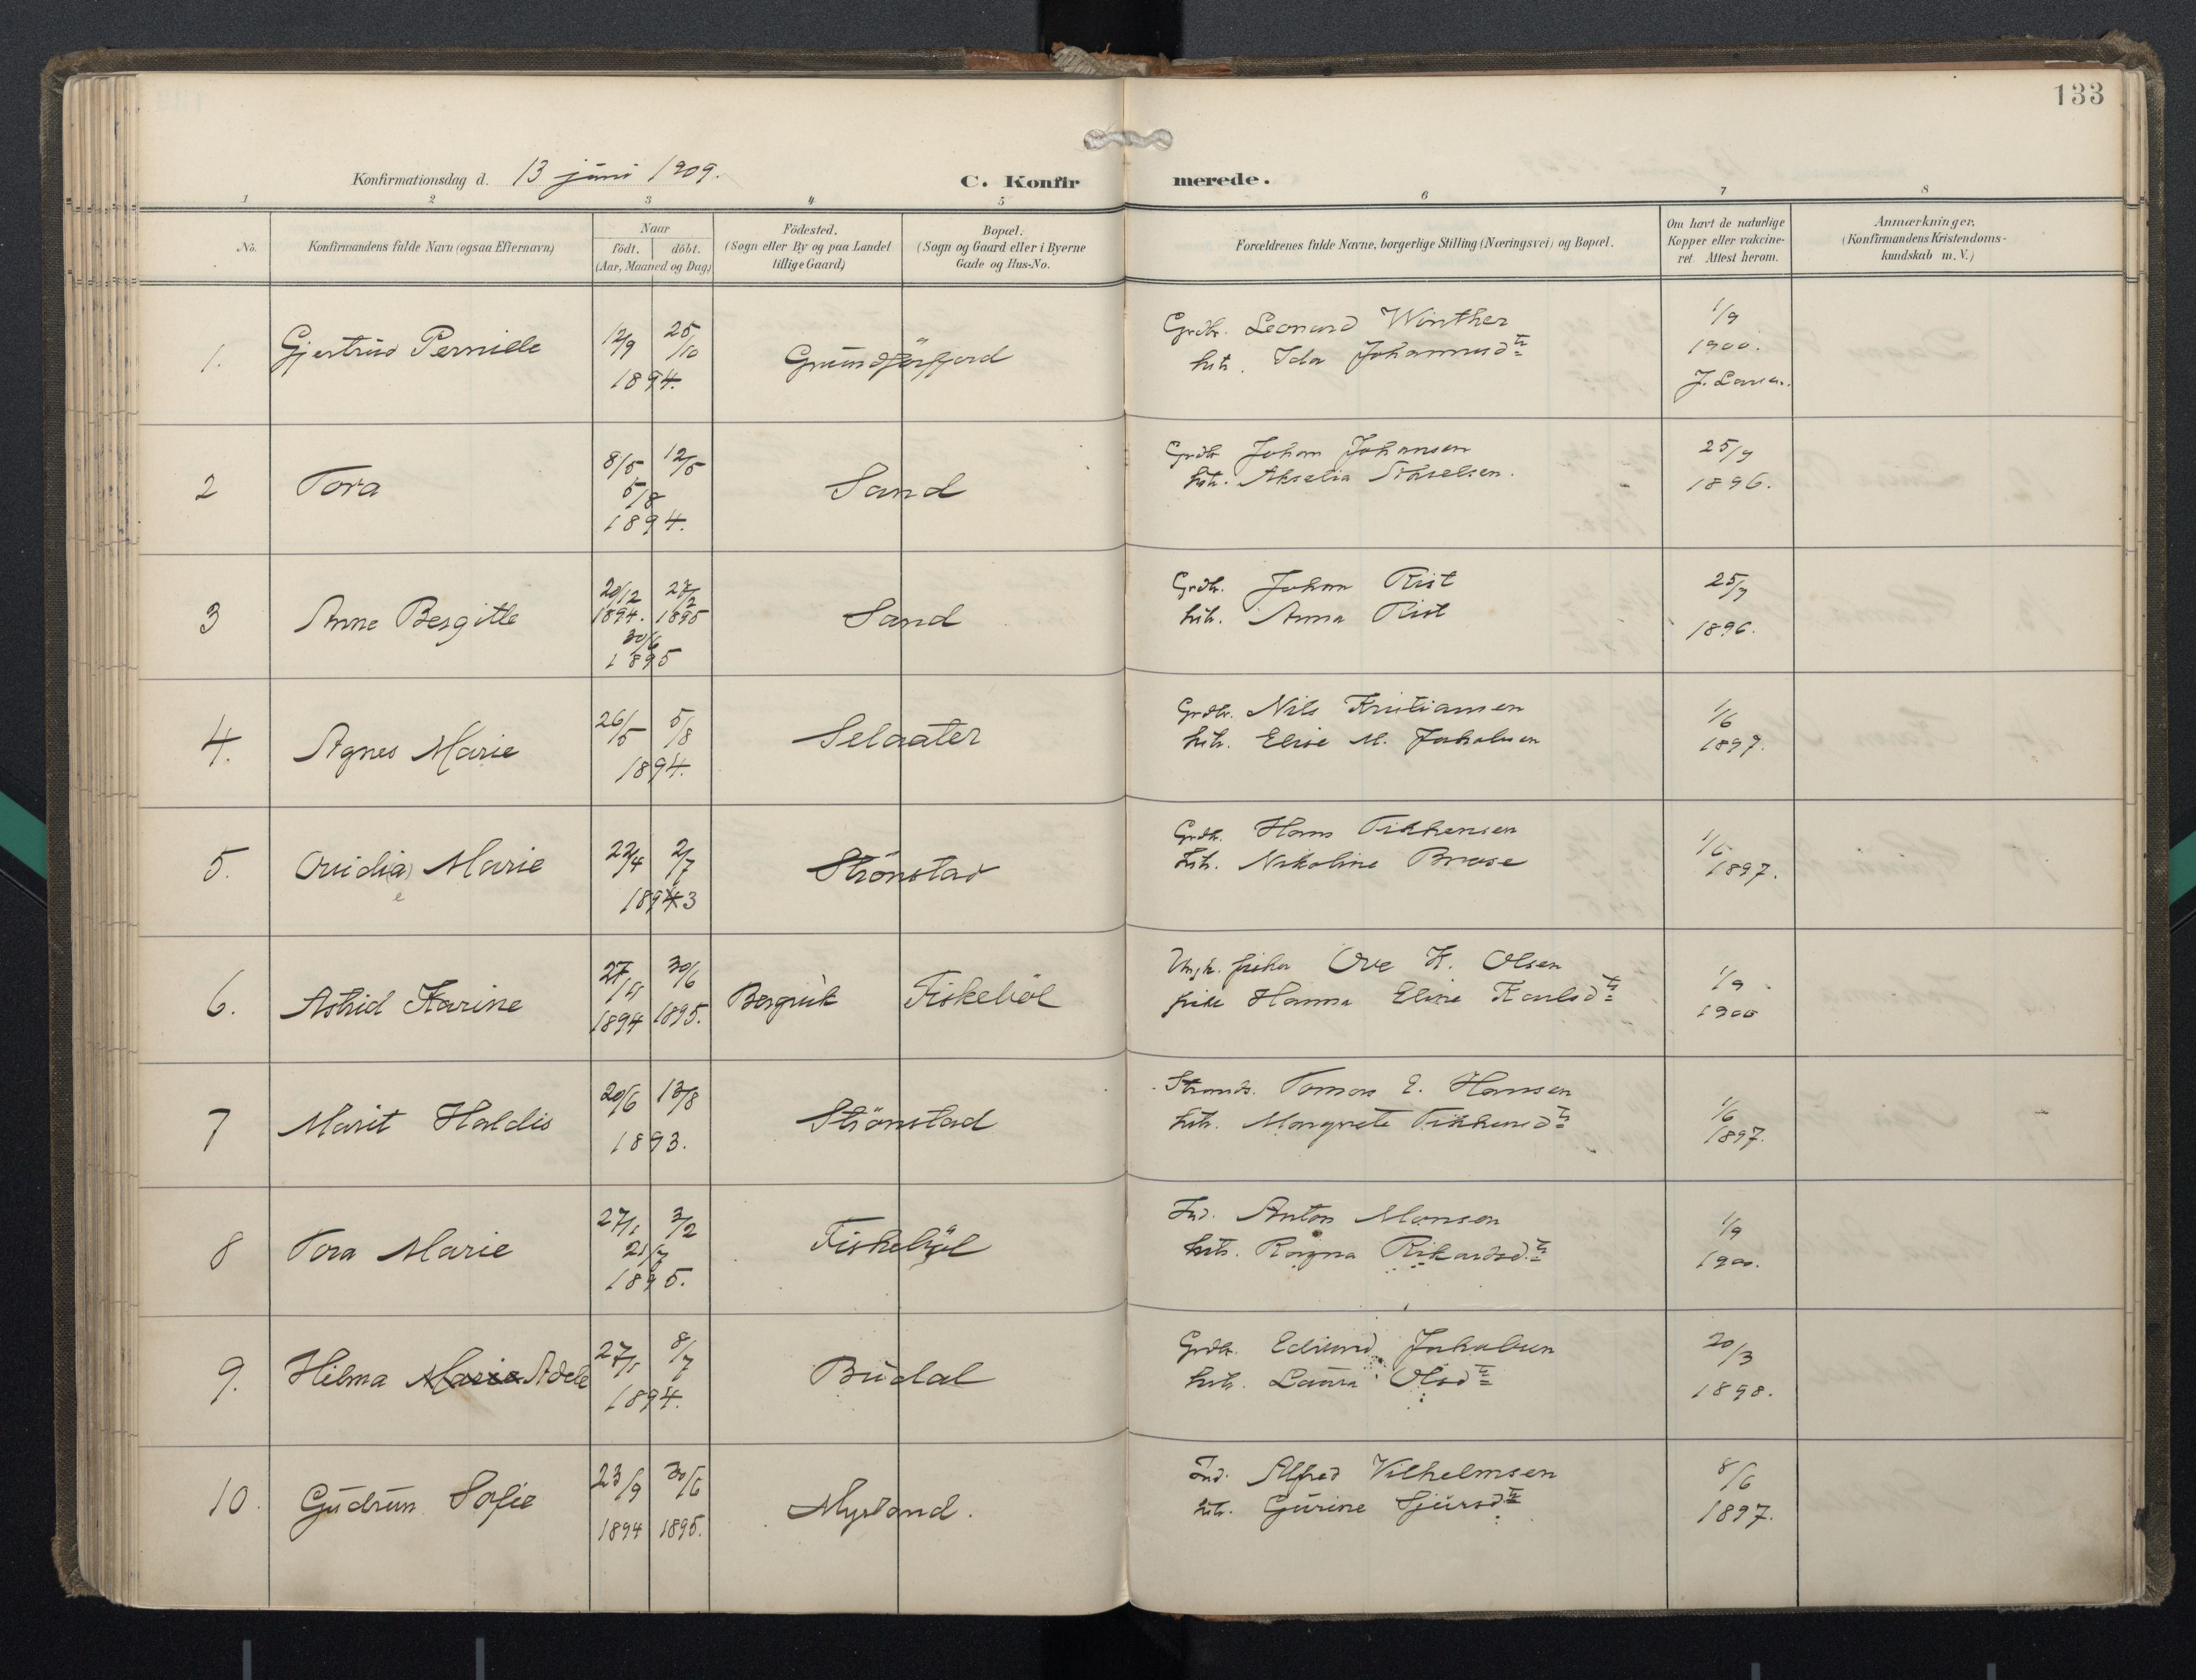 133
Konfirmationsdag d. 13 juni 1909.
C. Konfirmerede.
1 2 3 4 5 6 7 8
No.
Konfirmandens fulde Navn (ogsaa Efternavn)
Naar
födt. döbt.
(Aar, Maaned og Dag)
Födested.
(Sogn eller By og paa Landet
tillige Gaard)
Bopæl.
(Sogn og Gaard eller i Byerne
Gade og Hus-No.
Forældrenes fulde Navne, borgerlige Stilling (Næringsvei) og Bopæl.
Om havt de naturlige
Kopper eller vakcine-
ret. Attest herom.
Anmærkninger.
(Konfirmandens Kristendoms-
kundskab m. V.)
1. Gjertrud Pernille 12/9 25/10 1894. Grundförfjord
Grdbr. Leonard Winther
hstr. Ida Johannesdtr
1/9 1900. J. Larsen.
2 Tora 8/5 12/5 5/8 1894. Sand
Grdbr Johan Johansen
hstr. Akselia
25/9 1896.
3 Anne Bergitte 20/12 1894. 27/2 1895 30/6 1895 Sand
Grdbr. Johan Rist
hstr. Anna Rist
25/9 1896.
4. Agnes Marie 26/5 5/8 1894. Selaater
Grdbr. Nils Kristiansen
hstr. Elise M. Jakobsen
1/6 1897.
5. Ovidi(a) Marie 22/4 2/7 18943 Strönstad
e
Grdbr. Hans Tikkensen
hstr. Nikoline Bruse
1/6 1897.
6. Astrid Karine 27/11 1894 30/6 1895. Bergvik Fiskeböl
Ungk. fisker Ove K. Olsen
pike Hanna Eline Karlsdtr
1/9 1900
7 Marit Haldis 20/6 13/8 1893. Strönstad
Strands. Tomas E. Hansen
hstr. Margrete Tikkensdtr
1/6 1897.
8 Tora Marie 27/1 3/2 21/7 1895. Fiskeböl
Ind. Anton Monsen
hstr. Ragna Rikardsd.tr
1/9 1900.
9. Hilma Marie Adele 27/1 8/7 1894. Budal
Grdbr. Edvard Jakobsen
hstr. Laura Olsdtr
20/3 1898.
10. Gudrun Sofie 23/9 1894 30/6 1895. Myrland.
Ind. Alfred Vilhelmsen
hstr. Gurine Sjursdtr
8/6 1897.